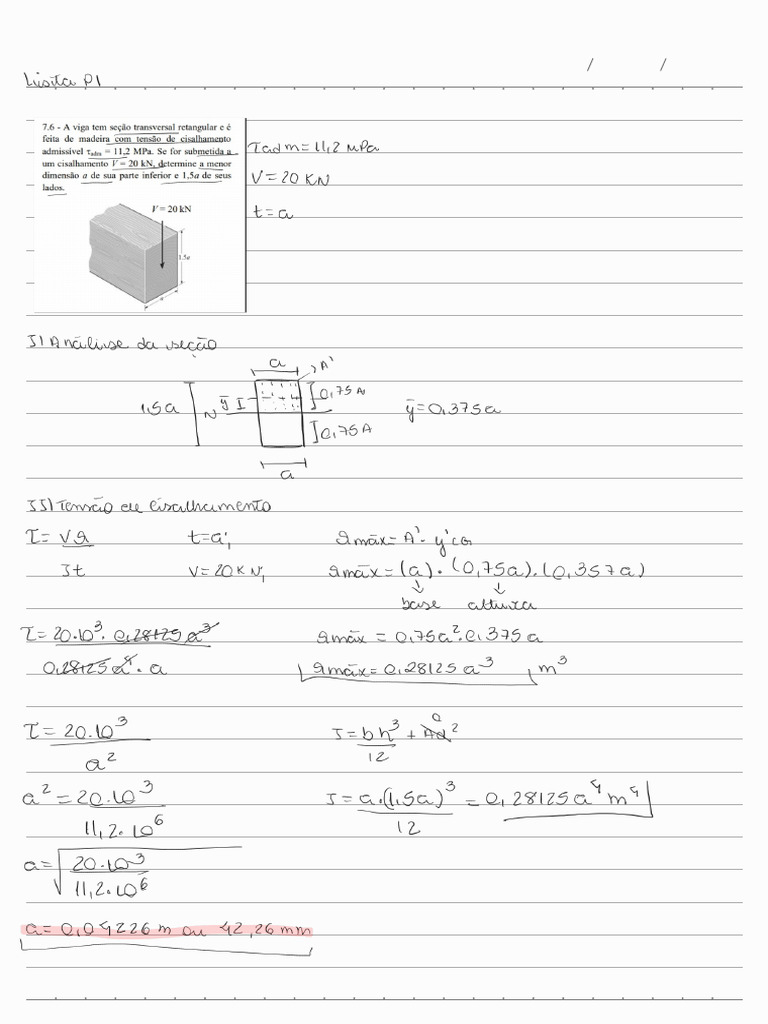 / /
Lista P1
7.6 - A viga tem seção transversal retangular e é
feita de madeira com tensão de cisalhamento
admissível τadm = 11,2 MPa. Se for submetida a
um cisalhamento V = 20 kN, determine a menor
dimensão a de sua parte inferior e 1,5a de seus
lados.
V = 20 kN
1.5a
a
τadm = 11,2 MPa
V = 20 KN
t = a
I) Análise da seção
a A'
1,5a N ȳ I 0,75A ȳ = 0,375a
0,75A
a
II) Tensão de cisalhamento
τ = VQ t = a; Qmáx = A' · y'cg
Jt V = 20KN; Qmáx = (a) · (0,75a) · (0,357a)
base altura
τ = 20·10³ · 0,28125 a³ Qmáx = 0,75a² · 0,375a
0,28125 a⁴ · a Qmáx = 0,28125 a³ m³
τ = 20·10³ J = bh³ + Ad² 0
a² 12
a² = 20·10³ J = a·(1,5a)³ = 0,28125 a⁴ m⁴
11,2·10⁶ 12
a = √ 20·10³
11,2·10⁶
a = 0,04226 m ou 42,26 mm